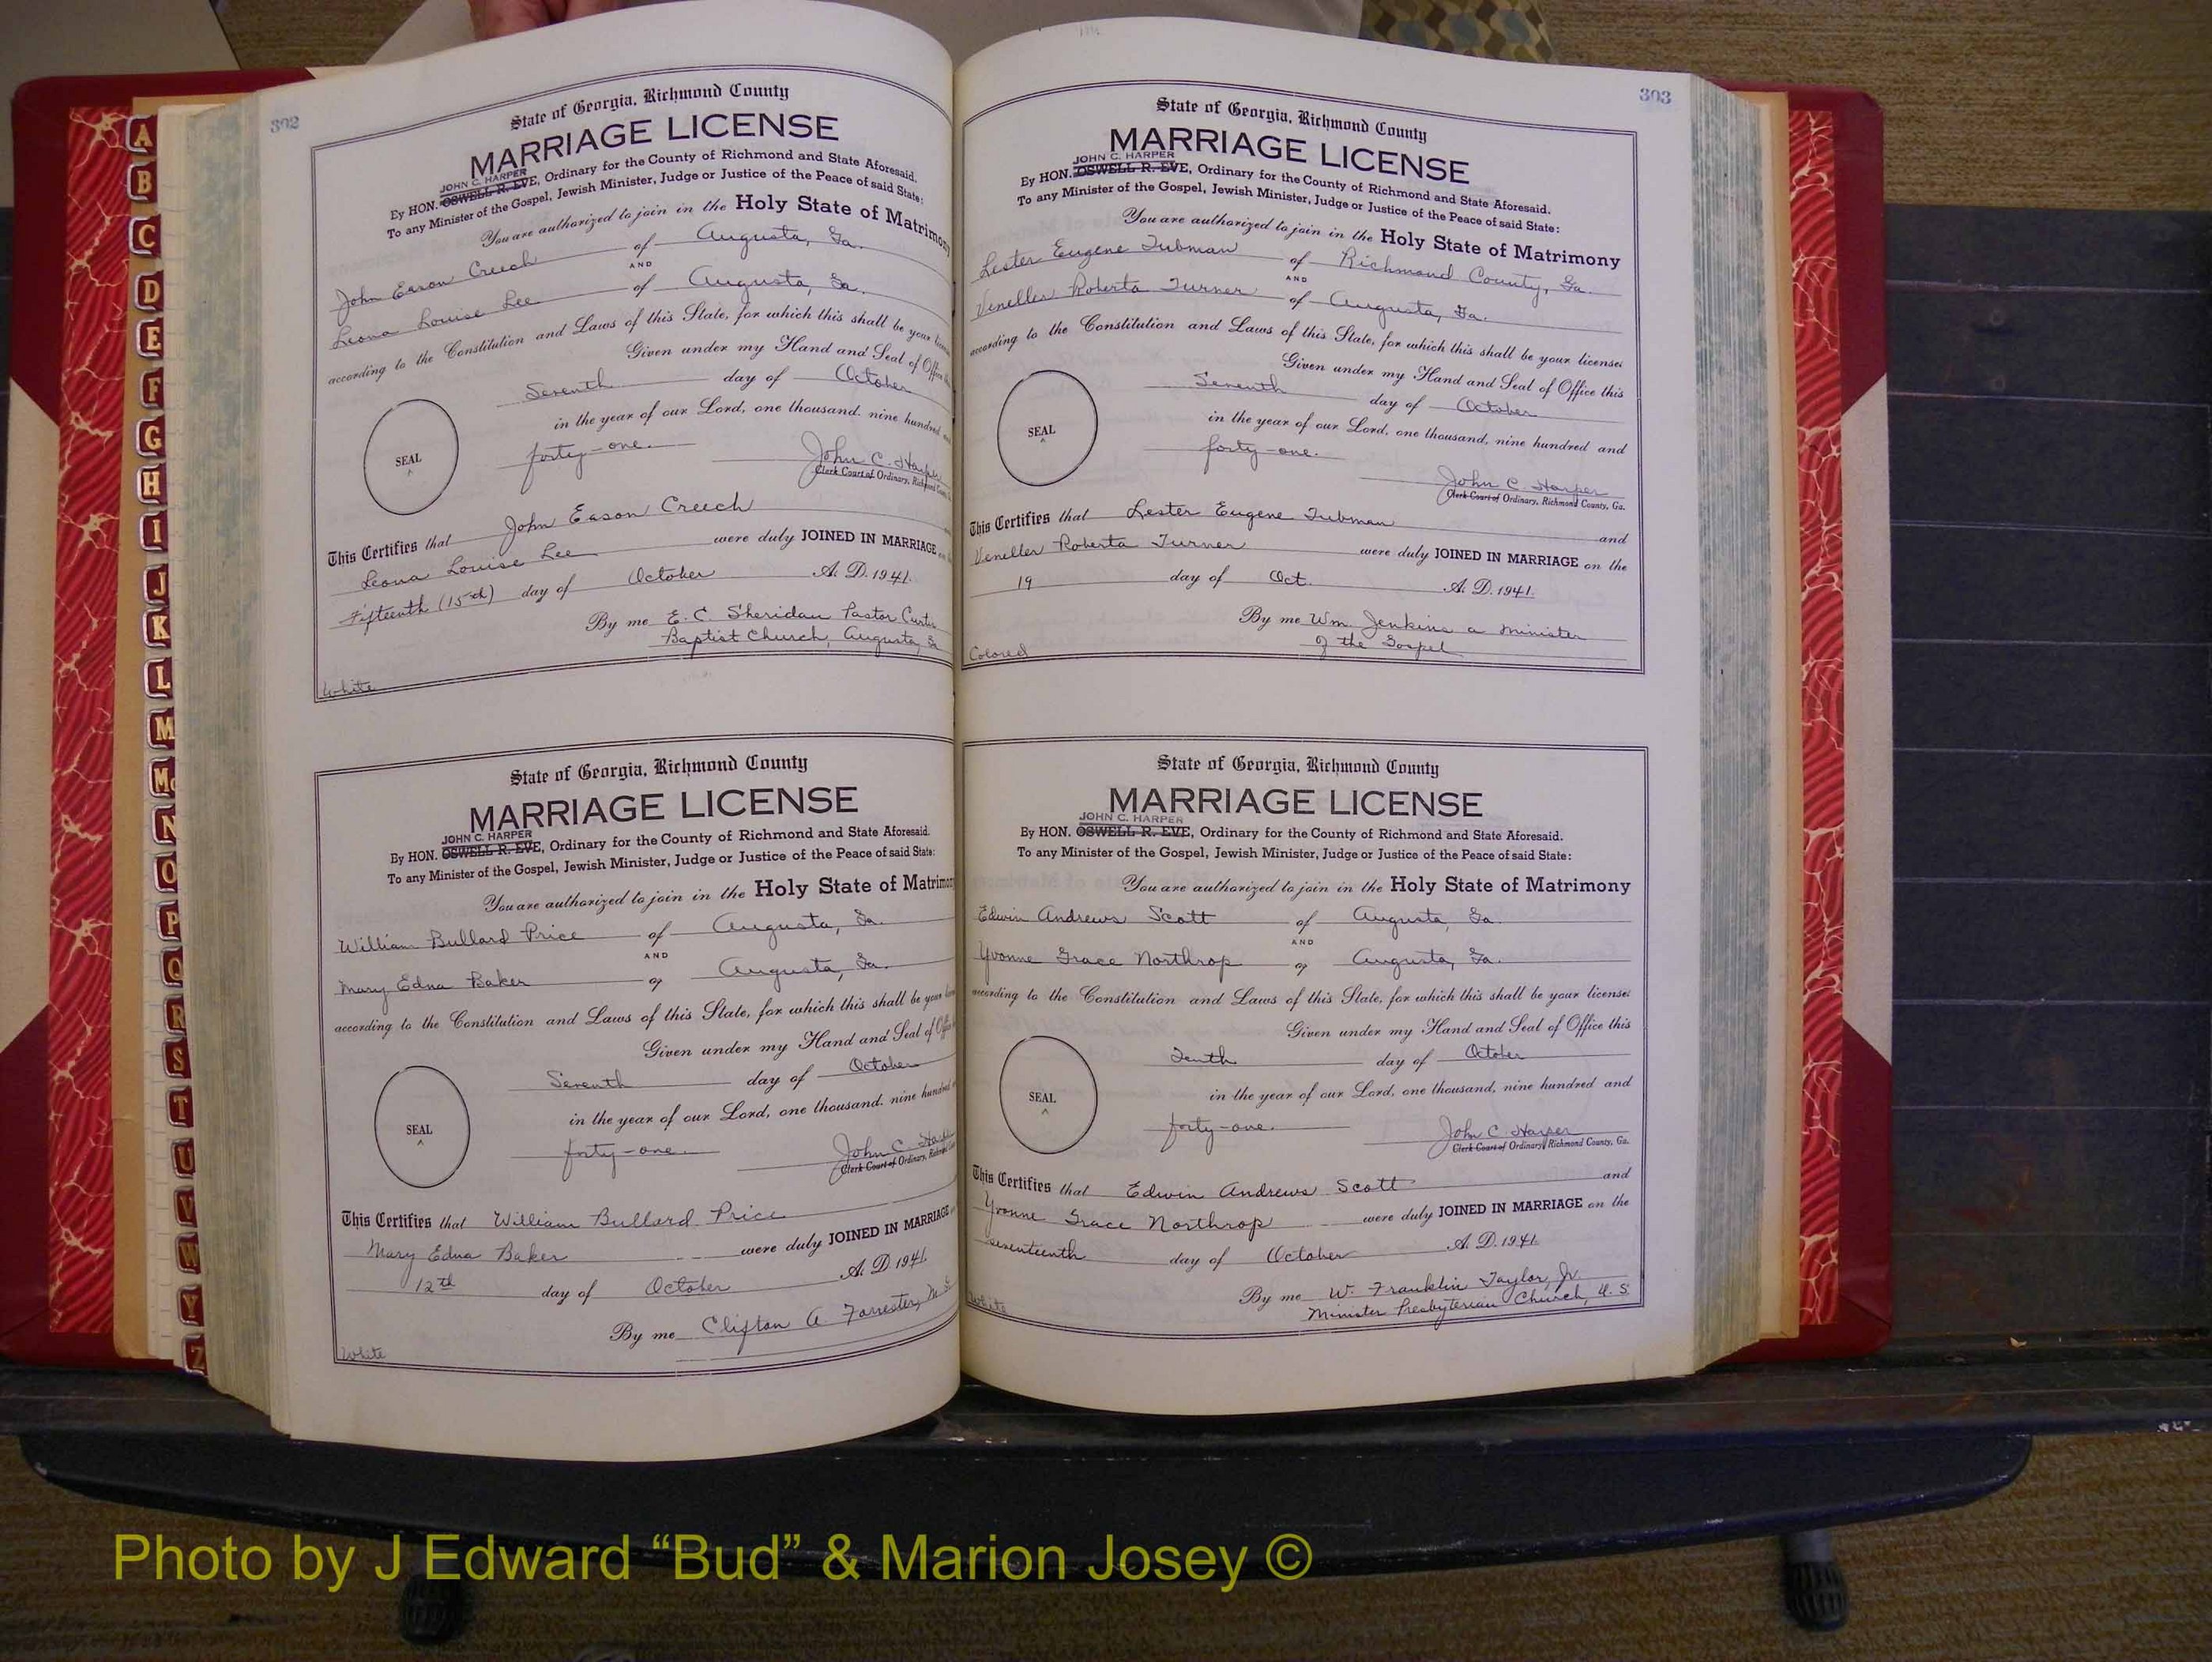 A
B
C
D
E
F
G
H
I
J
K
L
M
Mc
N
O
P
Q
R
S
T
U
V
W
Y
Z
302
State of Georgia, Richmond County
MARRIAGE LICENSE
JOHN C. HARPER
By HON. OSWELL R. EVE, Ordinary for the County of Richmond and State Aforesaid.
To any Minister of the Gospel, Jewish Minister, Judge or Justice of the Peace of said State:
You are authorized to join in the Holy State of Matrimony
John Eason Creech of Augusta, Ga.
AND
Leona Louise Lee of Augusta, Ga.
according to the Constitution and Laws of this State, for which this shall be your
Given under my Hand and Seal of Office
Seventh day of October
in the year of our Lord, one thousand, nine hundred
forty-one.
SEAL
John C. Harper
Clerk Court of Ordinary,
This Certifies that John Eason Creech
Leona Louise Lee were duly JOINED IN MARRIAGE
Fifteenth (15th) day of October A. D. 1941.
By me E. C. Sheridan Pastor Curtis
Baptist Church, Augusta, Ga
White
State of Georgia, Richmond County
MARRIAGE LICENSE
JOHN C. HARPER
By HON. OSWELL R. EVE, Ordinary for the County of Richmond and State Aforesaid.
To any Minister of the Gospel, Jewish Minister, Judge or Justice of the Peace of said State:
You are authorized to join in the Holy State of Matrimony
William Bullard Price of Augusta, Ga.
AND
Mary Edna Baker of Augusta, Ga.
according to the Constitution and Laws of this State, for which this shall be your
Given under my Hand and Seal of Office
Seventh day of October
in the year of our Lord, one thousand, nine hundred
forty-one.
SEAL
John C. Harper
Clerk Court of Ordinary,
This Certifies that William Bullard Price
Mary Edna Baker were duly JOINED IN MARRIAGE
12th day of October A. D. 1941.
By me Clifton A. Forrester, M. G.
White
303
State of Georgia, Richmond County
MARRIAGE LICENSE
JOHN C. HARPER
By HON. OSWELL R. EVE, Ordinary for the County of Richmond and State Aforesaid.
To any Minister of the Gospel, Jewish Minister, Judge or Justice of the Peace of said State:
You are authorized to join in the Holy State of Matrimony
Lester Eugene Tubman of Richmond County, Ga.
AND
Veneller Roberta Turner of Augusta, Ga.
according to the Constitution and Laws of this State, for which this shall be your license:
Given under my Hand and Seal of Office this
Seventh day of October
in the year of our Lord, one thousand, nine hundred and
forty-one.
SEAL
John C. Harper
Clerk Court of Ordinary, Richmond County, Ga.
This Certifies that Lester Eugene Tubman and
Veneller Roberta Turner were duly JOINED IN MARRIAGE on the
19 day of Oct. A. D. 1941.
By me Wm. Jenkins a minister
of the Gospel
Colored
State of Georgia, Richmond County
MARRIAGE LICENSE
JOHN C. HARPER
By HON. OSWELL R. EVE, Ordinary for the County of Richmond and State Aforesaid.
To any Minister of the Gospel, Jewish Minister, Judge or Justice of the Peace of said State:
You are authorized to join in the Holy State of Matrimony
Edwin Andrews Scott of Augusta, Ga.
AND
Yvonne Grace Northrop of Augusta, Ga.
according to the Constitution and Laws of this State, for which this shall be your license:
Given under my Hand and Seal of Office this
Tenth day of October
in the year of our Lord, one thousand, nine hundred and
forty-one.
SEAL
John C. Harper
Clerk Court of Ordinary, Richmond County, Ga.
This Certifies that Edwin Andrews Scott and
Yvonne Grace Northrop were duly JOINED IN MARRIAGE on the
seventeenth day of October A. D. 1941.
By me W. Franklin Taylor, Jr.
Minister Presbyterian Church, U. S.
White
Photo by J Edward “Bud” & Marion Josey ©